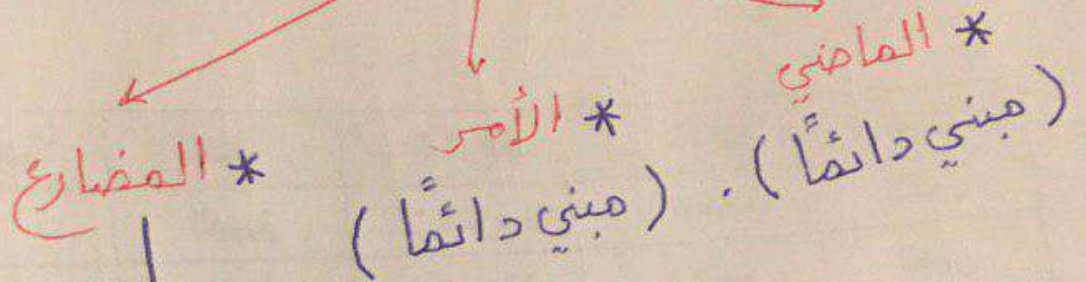 * الماضي
(مبني دائمًا).
* الأمر
(مبني دائمًا)
* المضارع